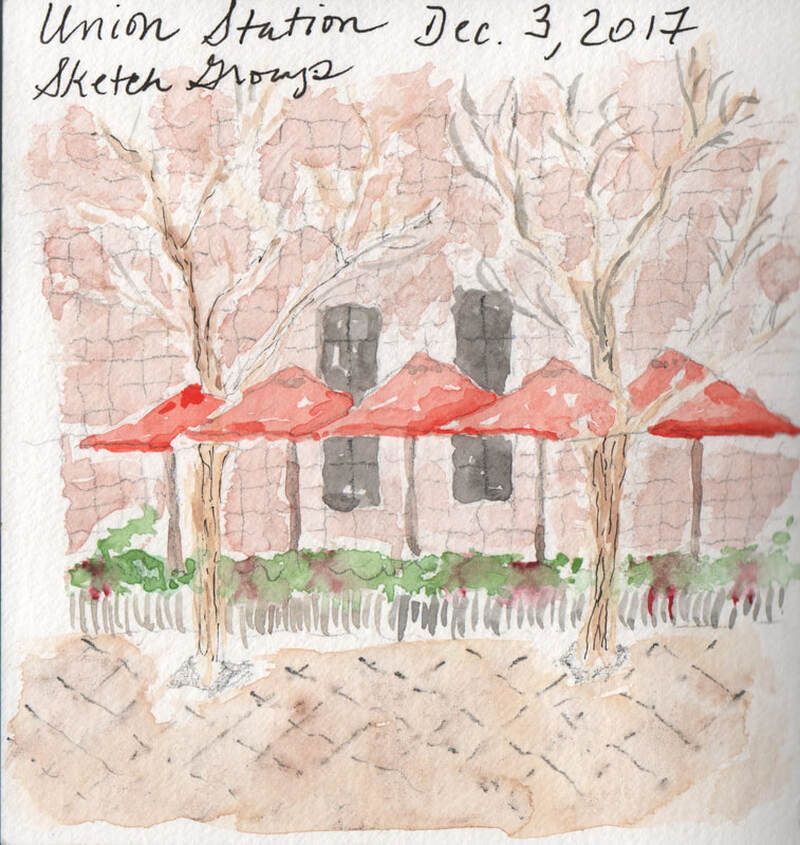 Union Station Dec. 3, 2017
Sketch Groups